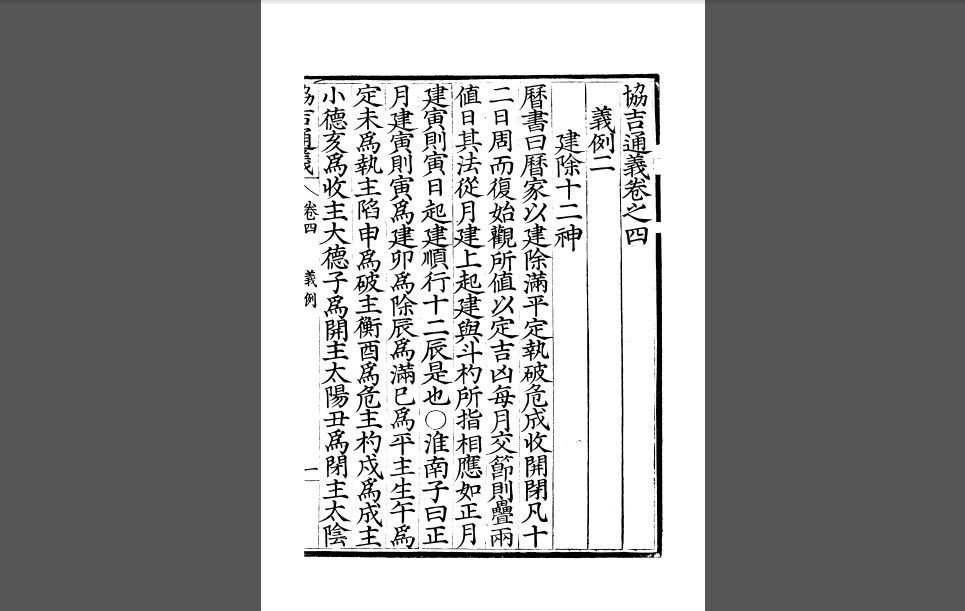 協吉通義卷之四
義例二
建除十二神
曆書曰曆家以建除滿平定執破危成收開閉凡十
二日周而復始觀所值以定吉凶每月交節則疊兩
值日其法從月建上起建與斗杓所指相應如正月
建寅則寅日起建順行十二辰是也〇淮南子曰正
月建寅則寅爲建卯爲除辰爲滿巳爲平主生午爲
定未爲執主陷申爲破主衡酉爲危主杓戍爲成主
小德亥爲收主大德子爲開主太陽丑爲閉主太陰
協吉通義 卷四 義例 一